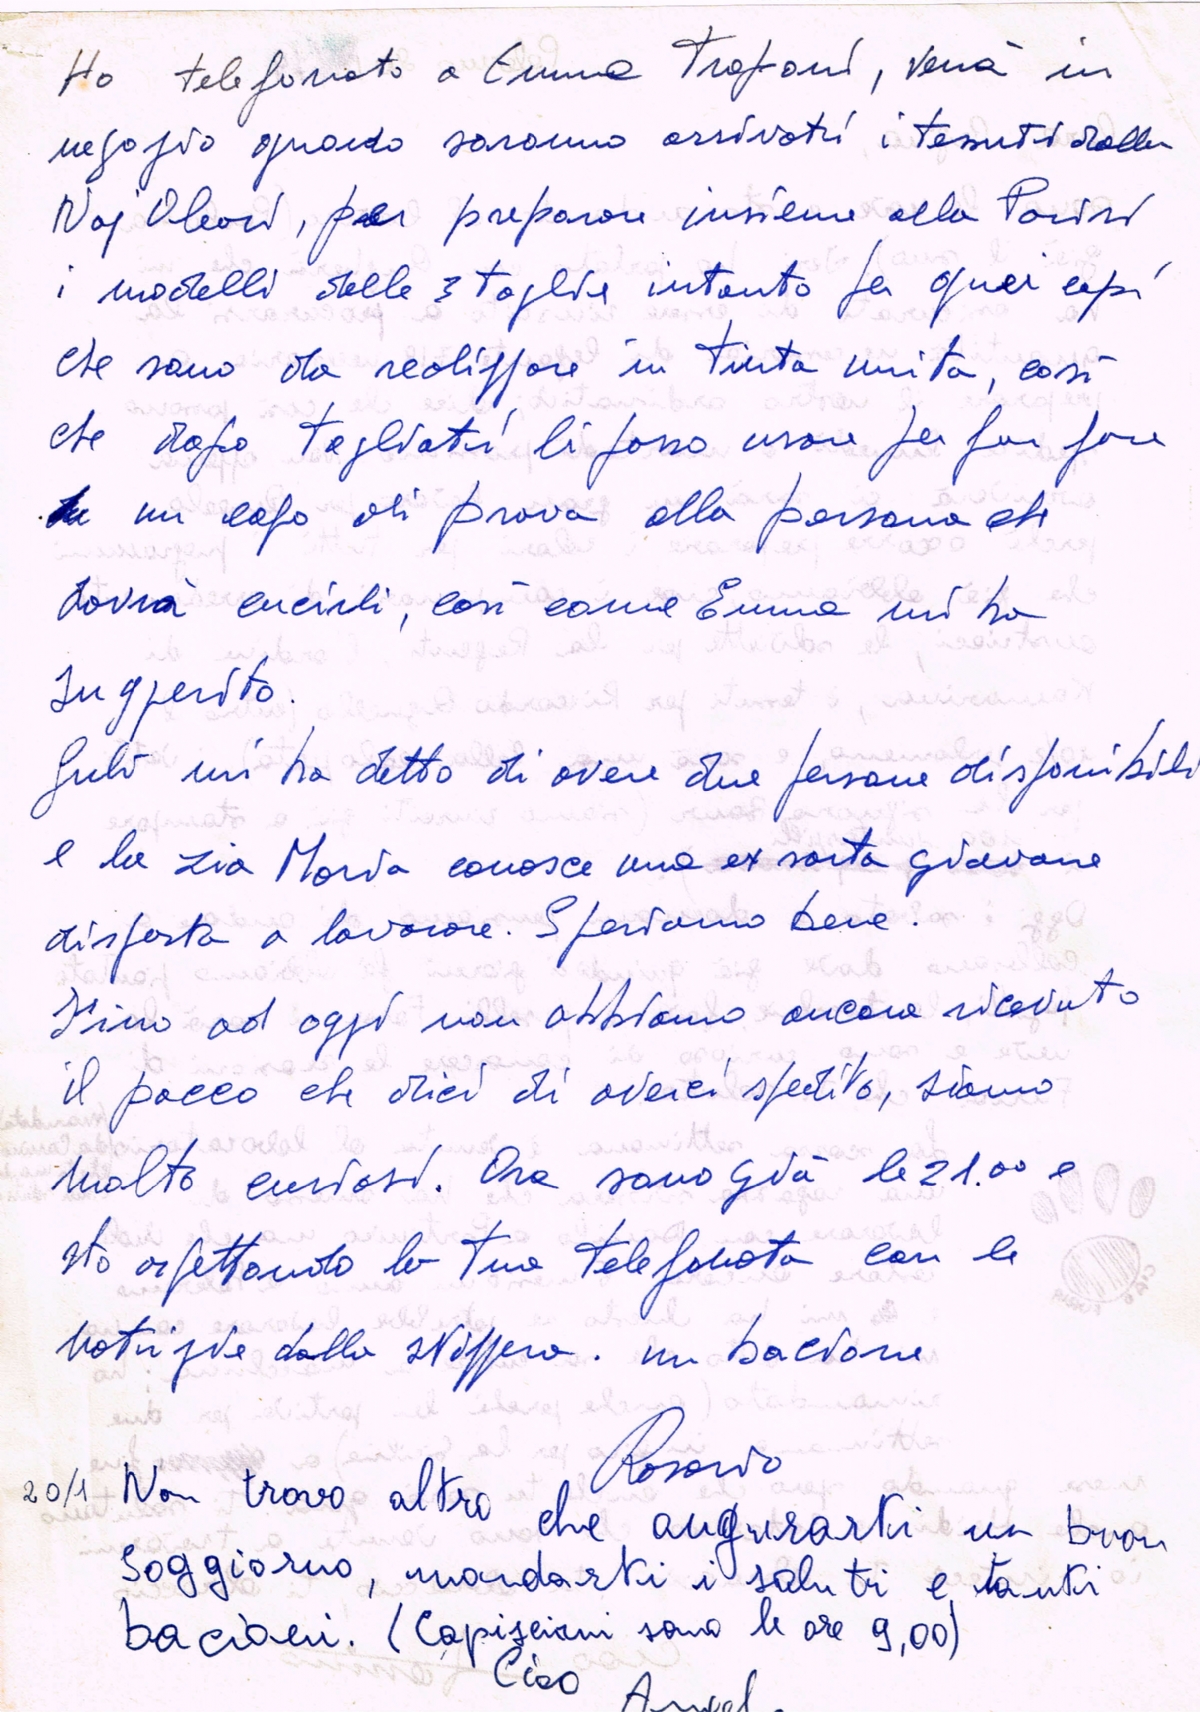 Ho telefonato a Emma Trapani, verrà in
negozio quando saranno arrivati i tessuti dalla
Naj Oleari, per preparare insieme alla Parisi
i modelli delle 3 taglie intanto per quei capi
che sono da realizzare in tinta unita, così
che dopo tagliati li possa usare per far fare
un capo di prova alla persona che
dovrà cucirli, così come Emma mi ha
suggerito.
Giulì mi ha detto di avere due persone disponibili
e la zia Maria conosce una ex sarta giovane
disposta a lavorare. Speriamo bene.
Fino ad oggi non abbiamo ancora ricevuto
il pacco che dici di averci spedito, siamo
molto curiosi. Ora sono già le 21.00 e
sto aspettando la tua telefonata con le
notizie dalla svizzera. un bacione
Rosario
20/1 Non trovo altro che augurarti un buon
soggiorno, mandarti i saluti e tanti
bacioni. (Capiscimi sono le ore 9,00)
Ciao